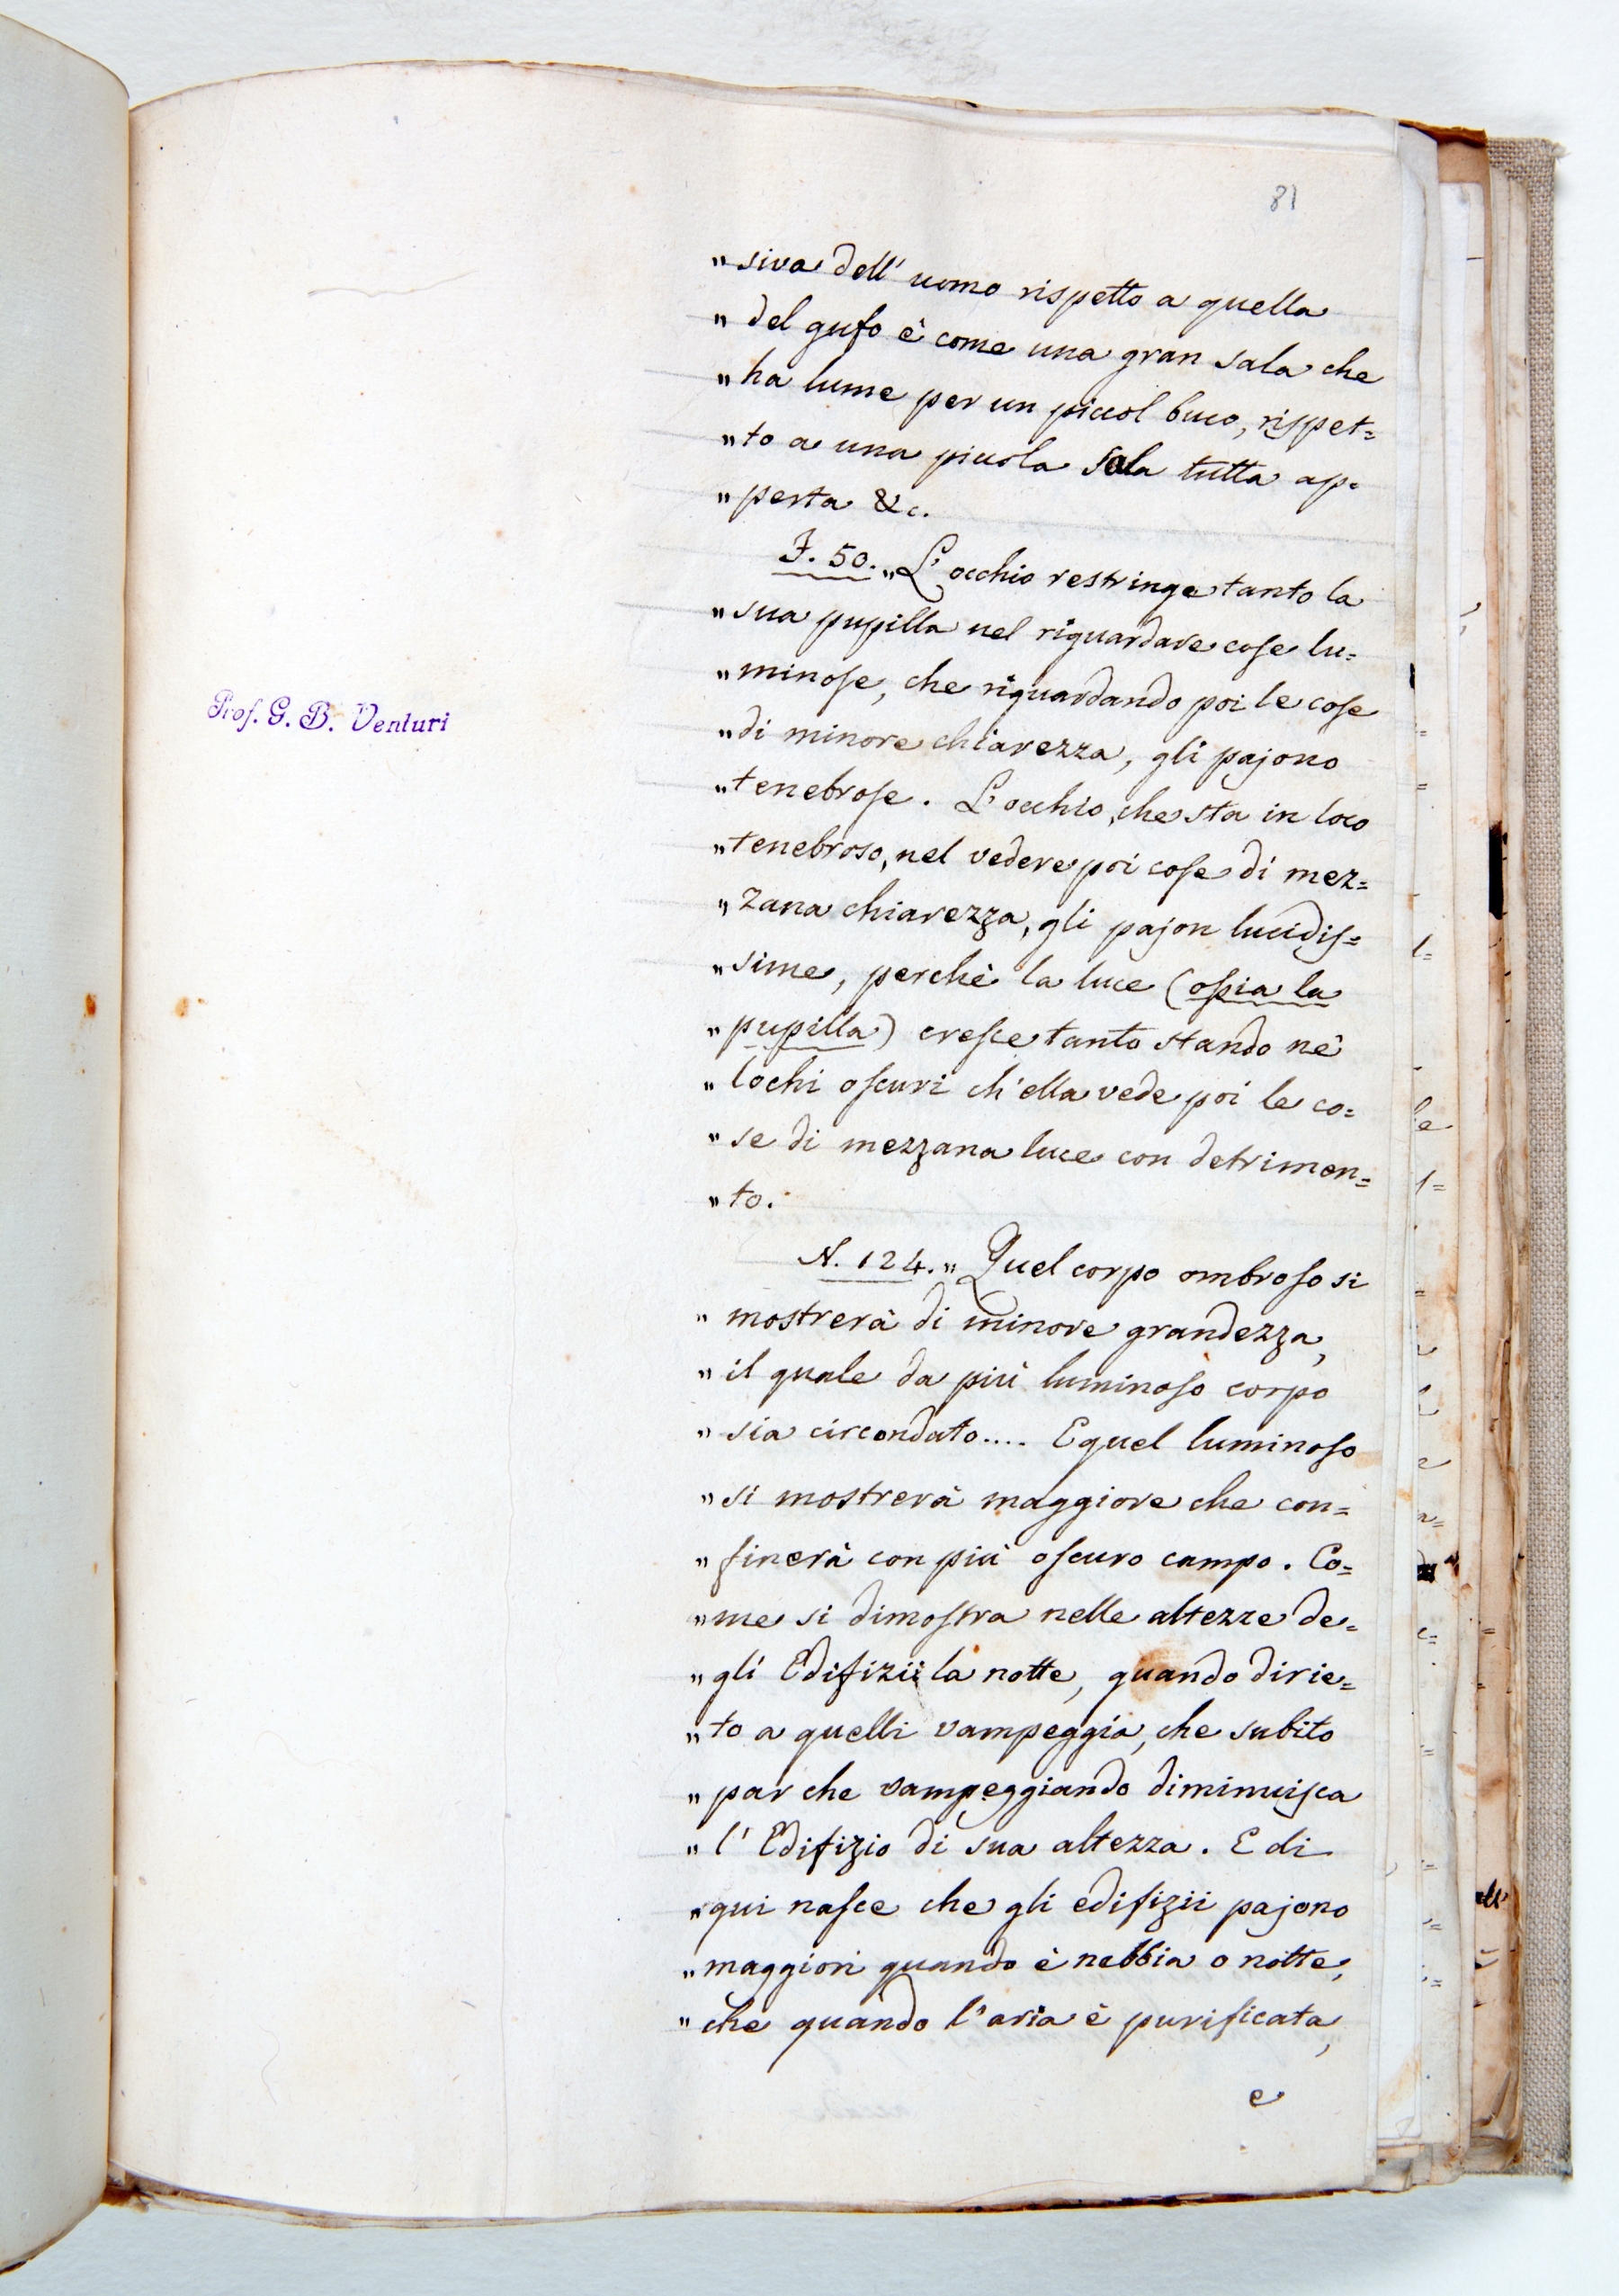 81
„ siva dell' uomo rispetto a quella
„ del gufo è come una gran sala che
„ ha lume per un piccol buco, rispet=
„ to a una picciola sala tutta ap=
„ perta &c.
F. 50. „ L'occhio restringe tanto la
„ sua pupilla nel riguardare cose lu=
„ minose, che riguardando poi le cose
„ di minore chiarezza, gli pajono
„ tenebrose. L'occhio, che sta in loco
„ tenebroso, nel vedere poi cose di mez=
„ zana chiarezza, gli pajon lucidis=
„ sime, perchè la luce (ossia la
„ pupilla) cresce tanto stando nè
„ lochi oscuri ch'ella vede poi le co=
„ se di mezzana luce con detrimen=
„ to.
Prof. G. B. Venturi
N. 124. „ Quel corpo ombroso si
„ mostrerà di minore grandezza,
„ il quale da più luminoso corpo
„ sia circondato.... E quel luminoso
„ si mostrerà maggiore che con=
„ finerà con più oscuro campo. Co=
„ me si dimostra nelle altezze de=
„ gli Edifizii la notte, quando dirie=
„ to a quelli vampeggia, che subito
„ par che vampeggiando diminuisca
„ l' Edifizio di sua altezza. E di
„ qui nasce che gli edifizii pajono
„ maggiori quando è nebbia o notte,
„ che quando l'aria è purificata,
e